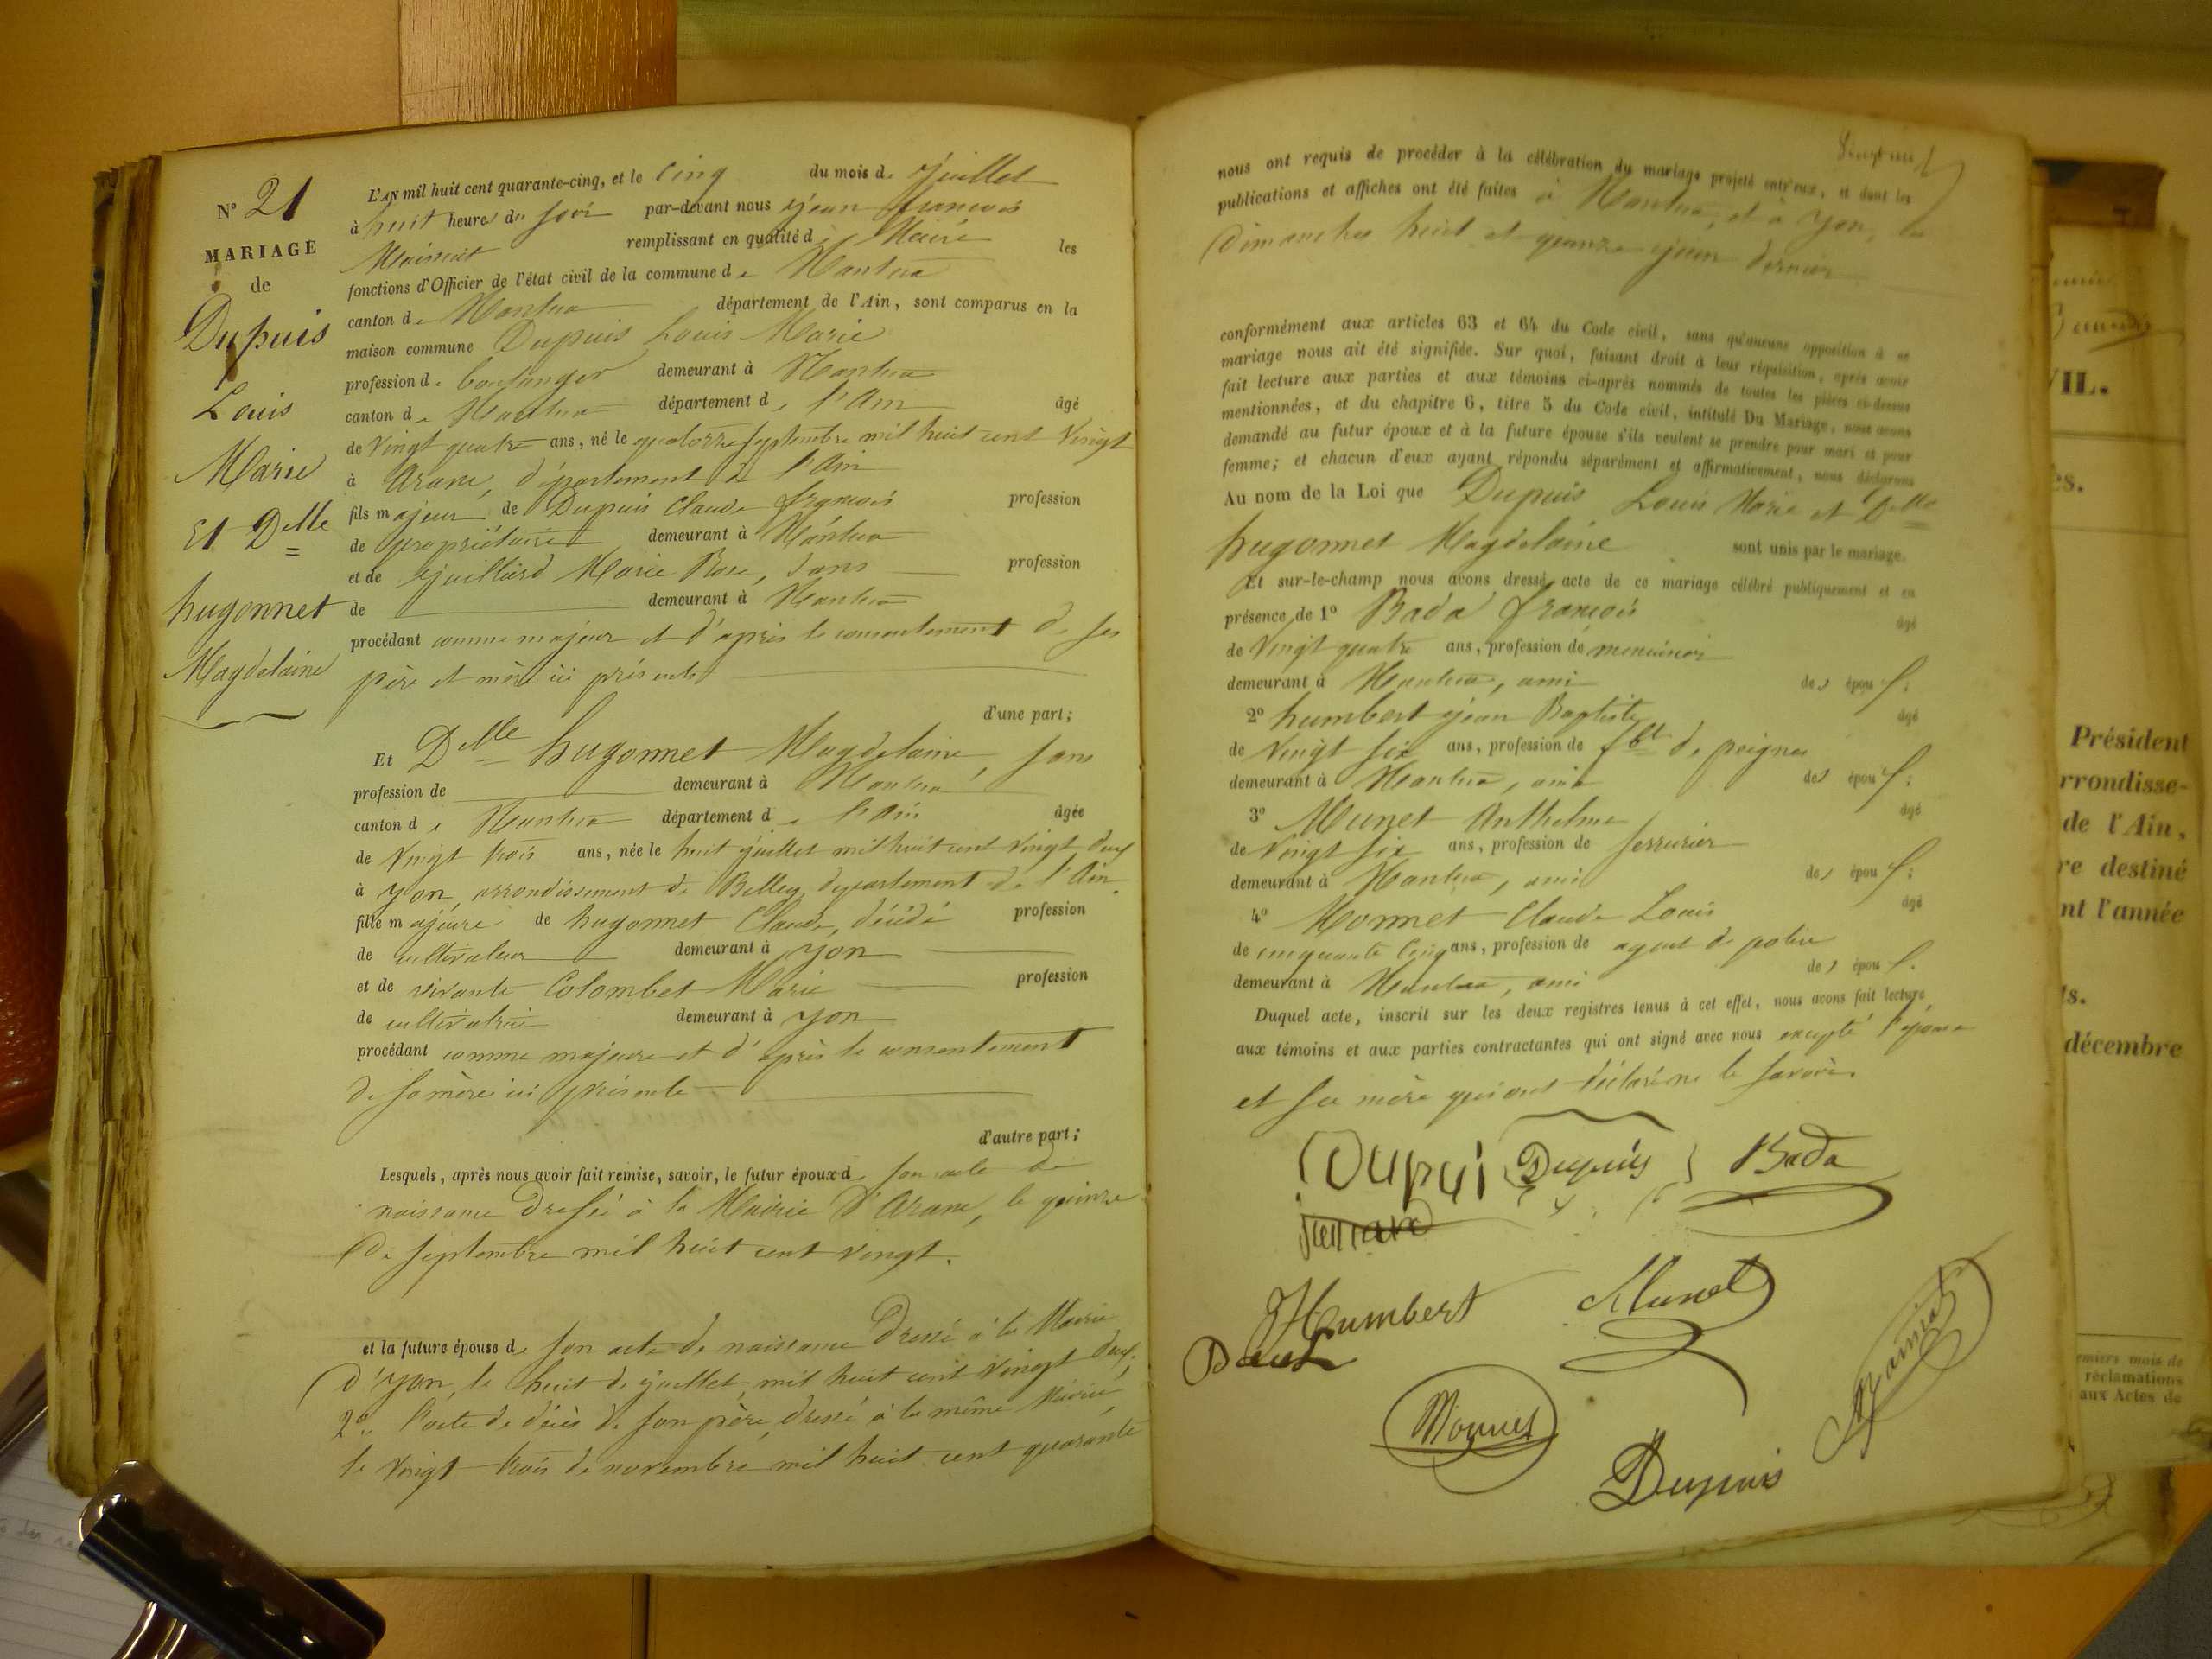 N° 21
MARIAGE
de
Dupuis
Louis
Marie
Et Delle
hugonnet
Magdelaine
L'AN mil huit cent quarante-cinq, et le cinq du mois de juillet
à huit heures du soir par-devant nous jean francois
remplissant en qualité de Maire les
fonctions d'Officier de l'état civil de la commune de Nantua
canton de Nantua département de l'Ain, sont comparus en la
maison commune Dupuis Louis Marie
profession de boulanger demeurant à Nantua
canton de Nantua département de l'Ain âgé
de Vingt quatre ans, né le quatorze septembre mil huit cent Vingt
à Arane, département de l'Ain
fils majeur de Dupuis Claude francois profession
de propriétaire demeurant à Nantua
et de juilliard Marie Rose, sans profession
de demeurant à Nantua
procédant comme majeur et d'après le consentement de ses
père et mère ici présents
d'une part;
Et Delle hugonnet Magdelaine, sans
profession de demeurant à Nantua
canton de Nantua département de l'Ain âgée
de Vingt trois ans, née le huit juillet mil huit cent vingt deux
à yon, arrondissement de Belley, département de l'Ain
fille majeure de hugonnet Claude, décédé profession
de cultivateur demeurant à yon
et de vivante Colombet Marie profession
de cultivatrice demeurant à yon
procédant comme majeure et d'après le consentement
de sa mère ici présente
d'autre part;
Lesquels, après nous avoir fait remise, savoir, le futur époux de son acte de
naissance dressé à la Mairie d'Arane, le quinze
de septembre mil huit cent vingt.
et la future épouse de son acte de naissance dressé à la Mairie
d'yon, le huit de juillet mil huit cent vingt deux;
2° l'acte de décès de son père, dressé à la même Mairie,
le Vingt trois de novembre mil huit cent quarante
nous ont requis de procéder à la célébration du mariage projeté entr'eux, et dont les
publications et affiches ont été faites à Nantua, et à yon, les
dimanches huit et quinze juin dernier
conformément aux articles 63 et 64 du Code civil, sans qu'aucune opposition à ce
mariage nous ait été signifiée. Sur quoi, faisant droit à leur réquisition, après avoir
fait lecture aux parties et aux témoins ci-après nommés de toutes les pièces ci-dessus
mentionnées, et du chapitre 6, titre 5 du Code civil, intitulé Du Mariage, nous avons
demandé au futur époux et à la future épouse s'ils veulent se prendre pour mari et pour
femme; et chacun d'eux ayant répondu séparément et affirmativement, nous déclarons
Au nom de la Loi que Dupuis Louis Marie et Delle
hugonnet Magdelaine sont unis par le mariage.
Et sur-le-champ nous avons dressé acte de ce mariage célébré publiquement et en
présence de 1° Bada francois âgé
de Vingt quatre ans, profession de menuisier
demeurant à Nantua, ami des époux;
2° humbert jean Baptiste âgé
de Vingt six ans, profession de fbt de peignes
demeurant à Nantua, ami des époux;
3° Munet Anthelme âgé
de Vingt six ans, profession de serrurier
demeurant à Nantua, ami des époux;
4° Monnet Claude Louis âgé
de cinquante cinq ans, profession de agent de police
demeurant à Nantua, ami des époux.
Duquel acte, inscrit sur les deux registres tenus à cet effet, nous avons fait lecture
aux témoins et aux parties contractantes qui ont signé avec nous excepté l'épouse
et sa mère qui ont déclaré ne le savoir.
Dupui Dupuis Bada
Humbert Munet
Monnet
Dupuis
VII.
Président
rrondisse-
de l'Ain,
re destiné
nt l'année
ls.
décembre
emiers mois de
réclamations
aux Actes de